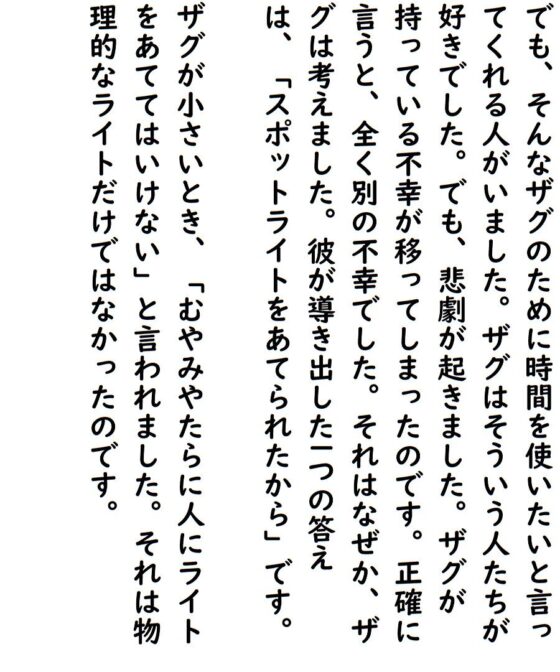 でも、そんなザグのために時間を使いたいと言っ
てくれる人がいました。ザグはそういう人たちが
好きでした。でも、悲劇が起きました。ザグが
持っている不幸が移ってしまったのです。正確に
言うと、全く別の不幸でした。それはなぜか、ザ
グは考えました。彼が導き出した一つの答え
は、「スポットライトをあてられたから」です。
ザグが小さいとき、「むやみやたらに人にライト
をあててはいけない」と言われました。それは物
理的なライトだけではなかったのです。